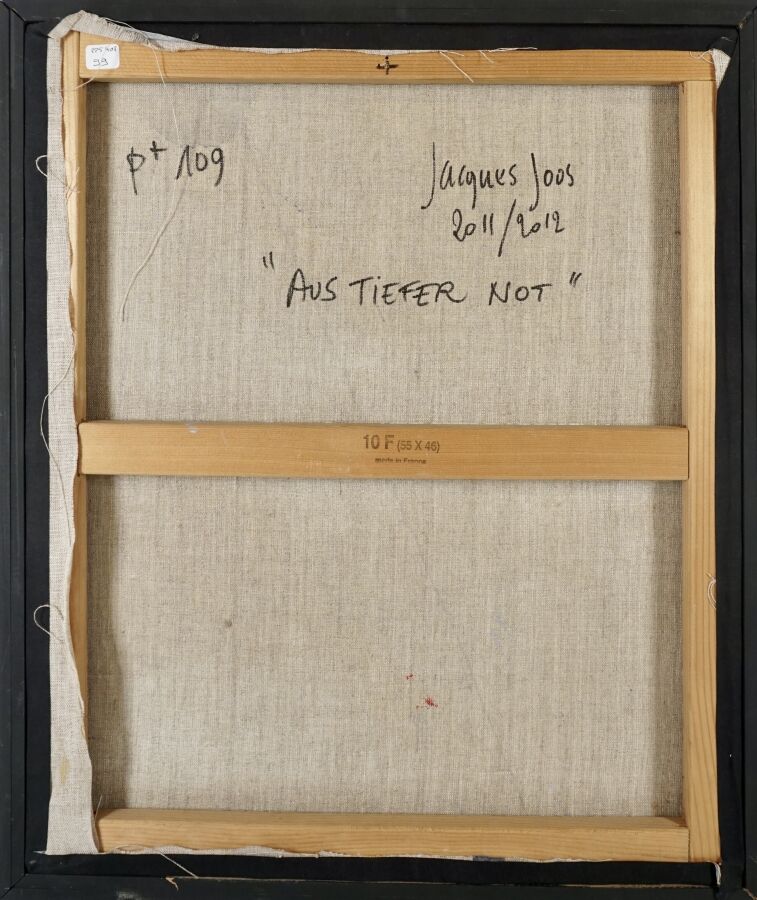 99
p+ 109
Jacques Joos
2011/2012
"AUS TIEFER NOT"
10 F (55 X 46)
made in France